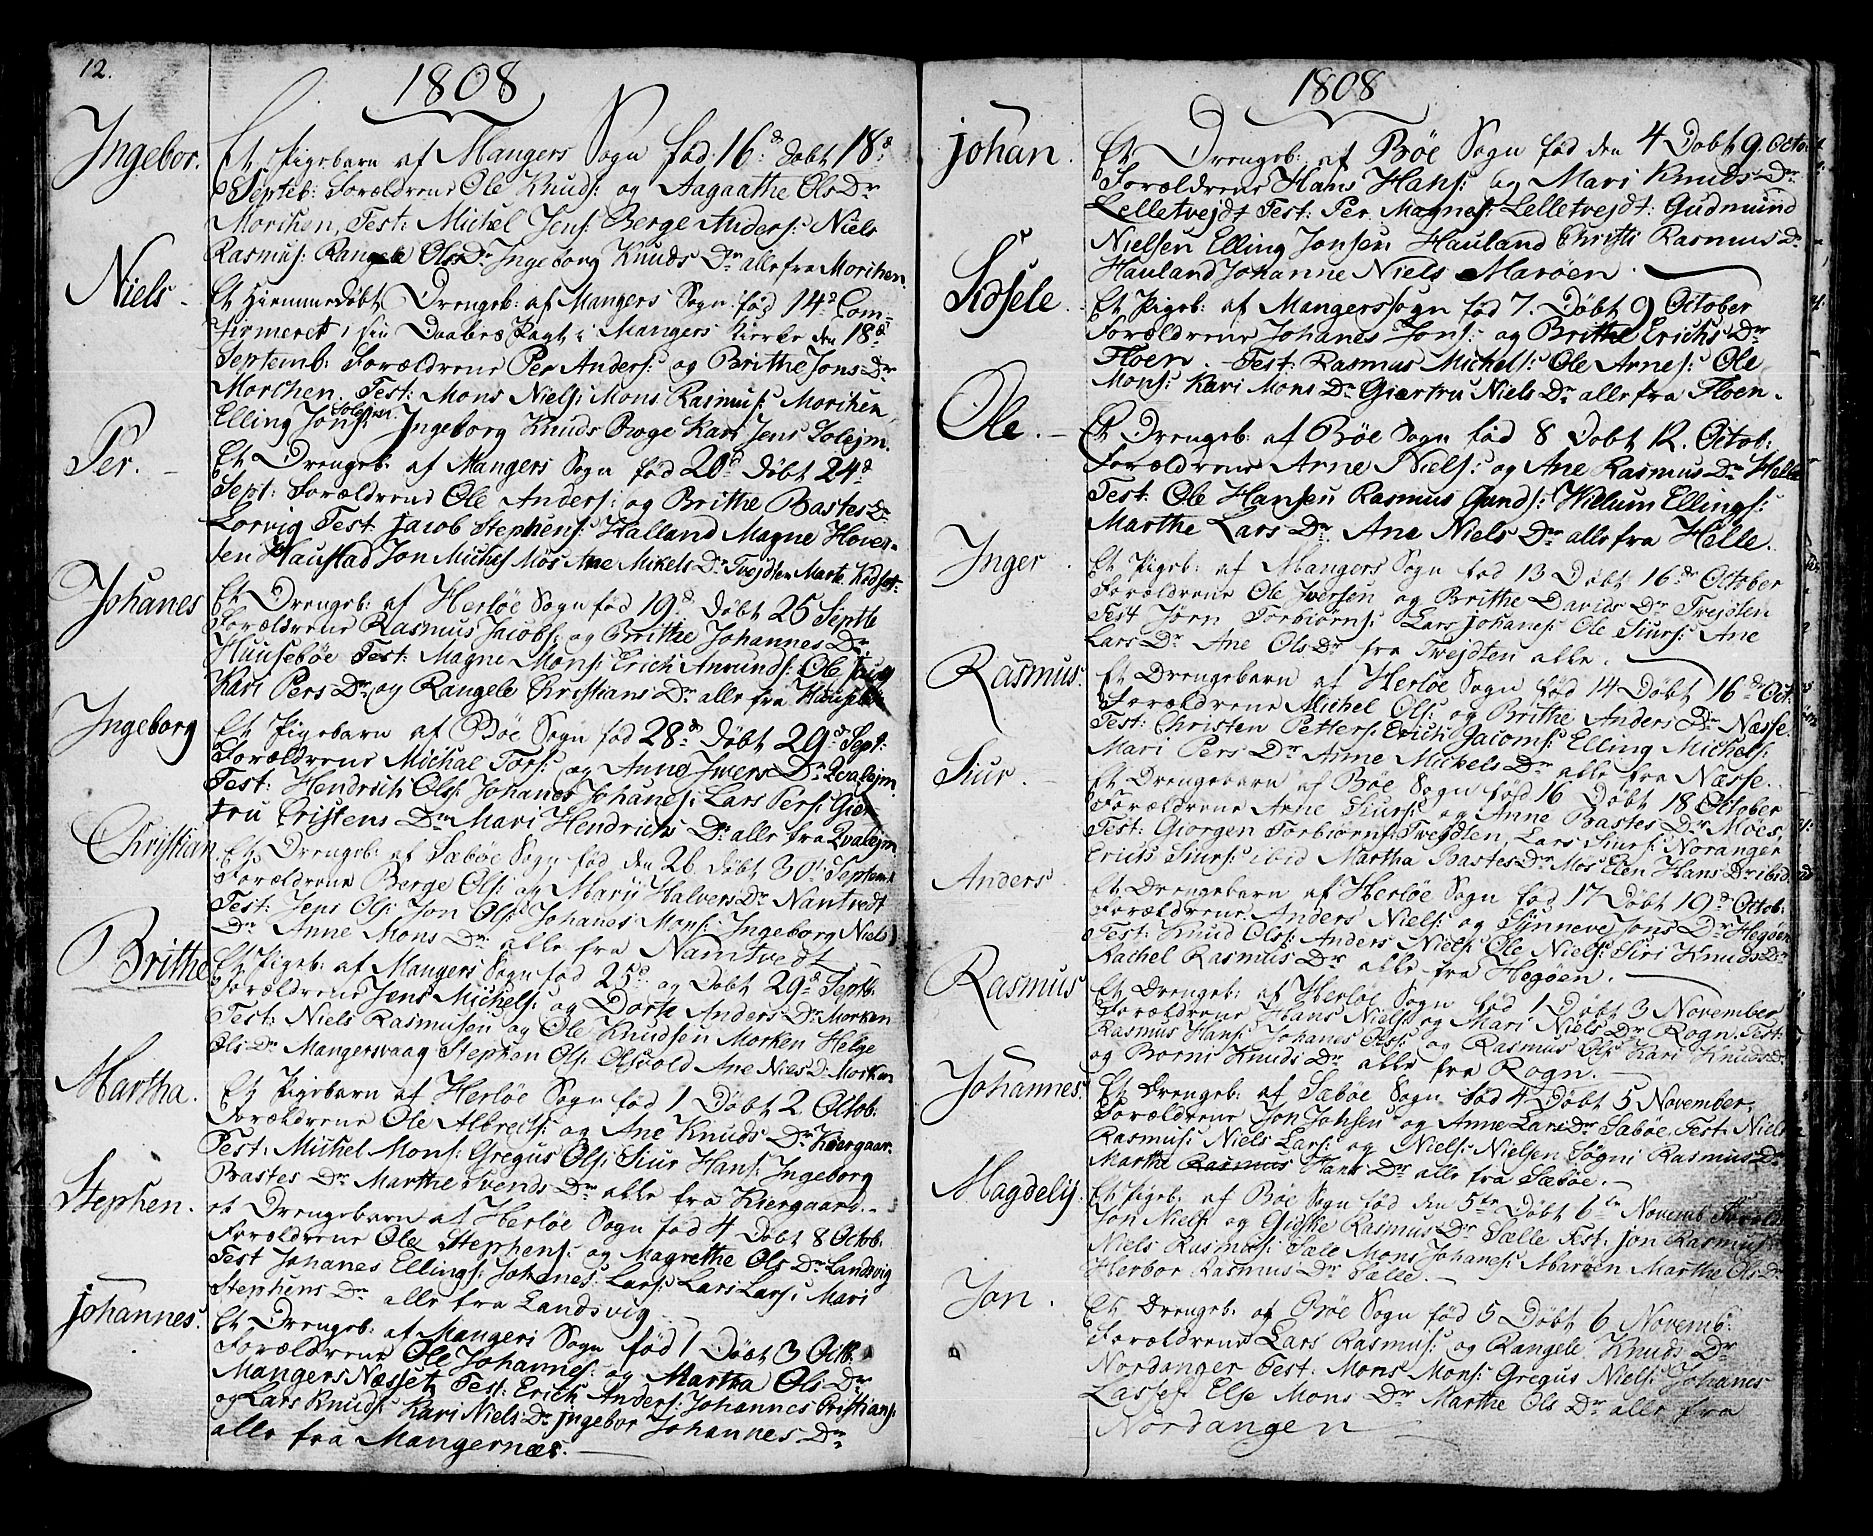 12.
1808
Ingebor.
Et Pigebarn af Mangers Sogn fød 16d døbt 18d
Septeb: Forældrene Ole Knuds: og Aagaathe Ols Dr
Morchen, Test: Michel Jens: Berge Anders: Niels
Rasmus: Rangele Ols Dr Ingeborg Knuds Dr alle fra Morchen.
Niels.
Et Hiemmedøbt Drengeb: af Mangers Sogn fød 14d Com=
firmeret i sin Daabes Pagt i Mangers Kierke den 18d
Septemb: Forældrene Per Anders: og Brithe Jons Dr
Morchen Test: Mons Niels: Mons Rasmus: Morchen
Elling Jons: Solejm Ingeborg Knuds Boge Kari Jens Solejm.
Per.
Et Drengeb: af Mangers Sogn fød 20d døbt 24d
Sept: Forældrene Ole Anders: og Brithe Bastes Dr
Lorvig Test Jacob Stephens: Halland Magne Hover=
sen Haustad Jon Michels Mos Ane Mikels Dr Tvejdten Marte
Johanes
Et Drengeb: af Herløe Sogn fød 19d døbt 25 Septb
Forældrene Rasmus Jacobs: og Brithe Johannes Dr
Hausebøe Test: Magne Mons: Erich Amunds: Ole
Kari Pers Dr og Rangele Christians Dr alle fra Hausebøe
Ingeborg
Et Pigebarn af Bøe Sogn fød 28d døbt 29d Sept:
Forældrene Michal Tors: og Anne Iwers Dr Qvalejm
Test: Hendrich Ols: Johanes Johanes: Lars Pers: Gier
tru Cristens Dr Mari Hendrichs Dr alle fra Qvalejm
Christian
Et Drengeb: af Sæbøe Sogn fød den 26 døbt 30 Septemb
Forældrene Berge Ols: og Mari Halvers Dr Namtvedt
Test: Jens Ols: Jon Ols: Johanes Mons: Ingeborg Niels
Dr Anne Mons Dr alle fra Namtvedt
Brithe
Et Pigeb: af Mangers Sogn fød 25d og døbt 29d Septb:
Forældrene Jens Michels: og Dorte Anders Dr Morken
Test: Niels Rasmusen og Ole Knudsen Morken Helge
Ols Dr Mangersvaag Stephen Ols: Ane Niels Dr Morken
Martha.
Et Pigebarn af Herløe Sogn fød 1 Døbt 2 Octob:
Forældrene Ole Albrechts: og Ane Knuds Dr Kiergaar.
Test: Michel Mons: Gregus Ols: Siur Hans: Ingeborg
Bastes Dr Marthe Svends Dr alle fra Kiergaard.
Stephen.
et Drengebarn af Herløe Sogn fød 4 Døbt 8 Octob:
Forældrene Ole Stephens: og Magrethe Ols Dr Landsvig
Test Johanes Ellings: Johanes Lars: Lars Lars: Mari
Stephens Dr alle fra Landsvig
Johannes.
Et Drengeb: af Mangers Sogn fød 1 Døbt 3 Octb.
Forældrene Ole Johannes: og Martha Ols Dr
Mangers Næsset Test: Erick Anders: Johannes Cristians:
og Lars Knuds: Kari Niels Dr Ingebor Johannes Dr
alle fra Mangernæs.
1808
Johan.
Et Drengeb: af Bøe Sogn fød den 4 Døbt 9. Octo
Forældrene Hans Hans: og Mari Knuds Dr
Lelletvejdt Test: Per Magnes: Lelletvejdt: Gudmund
Nielsen Elling Jonsen Hauland Christi Rasmus Dr
Hauland Johanne Niels Marøen.
Sidsele.
Et Pigeb: af Mangers sogn fød 7. Døbt 9 October
Forældrene Johanes Jons: og Brithe Erichs Dr
Floen Test: Rasmus Michels: Ole Arnes: Ole
Mons: Kari Mons Dr Giertru Niels Dr alle fra Floen.
Ole.
Et Drengeb: af Bøe Sogn fød 8 Døbt 12. Octob:
Forældrene Arne Niels: og Ane Rasmus Dr Helle
Test: Ole Hansen Rasmus Gunds: Willum Ellings:
Marthe Lars Dr Ane Niels Dr alle fra Helle.
Inger.
Et Pigeb: af Mangers Sogn fød 13 Døbt 16de October
Forældrene Ole Iversen og Brithe Davids Dr Tvejdten
Test Jørn Torbiørns: Lars Johanes: Ole Siurs: Ane
Lars Dr Ane Ols Dr fra Tvejdten alle.
Rasmus.
Et Drengebarn af Herløe Sogn fød 14 Døbt 16de Oct
Forældrene Michel Ols: og Brithe Anders Dr Næsse
Test: Christen Petters: Erich Jacoms: Elling Michels:
Mari Pers Dr Anne Michels Dr alle fra Næsse.
Siur.
Et Drengebarn af Bøe Sogn fød 16 Døbt 18 October
Forældrene Arne Siurs: og Anne Bastes Dr Moes
Test: Giorgen Torbiørns: Tvejdten, Lars Siurs: Noranger
Erichs Siurs: ibid Martha Bastes Dr Mos Elen Hans Dr ibid
Anders.
Et Drengebarn af Herløe Sogn fød 17 Døbt 19d Octob:
Forældrene Anders Niels: og Synneve Jons Dr Hegøen
Test: Knud Ols: Anders Niels: Ole Niels: Siri Knuds Dr
Rachel Rasmus Dr alle fra Hegøen.
Rasmus
Et Drengeb: af Herløe Sogn fød 1 Døbt 3 November
Forældrene Hans Niels: og Mari Niels Dr Rogn. Test:
Rasmus Hans: Johanes Ols: og Rasmus Ols: Kari Knuds Dr
og Borni Knuds Dr alle fra Rogn.
Johannes.
Et Drengeb: af Sæbøe Sogn fød 4 Døbt 5 November
Forældrene Jon Johsen og Anne Lars Dr Sæbøe. Test: Niels
Rasmus: Niels Lars: og Niels: Nielsen Søgni Rasmus Dr
Marthe Rasmus Hans Dr alle fra Sæbøe.
Magdelij.
Et Pigeb: af Bøe Sogn fød den 5te Døbt 6te Novemb Foræld
Jon Niels: og Gidske Rasmus Dr Sælle Test: Jon Rasmus:
Niels Rasmus: Sæle Mons Johanes: Marøen Marthe Ols Dr
Herbor Rasmus Dr Sælle.
Jon.
Et Drengeb: af Bøe Sogn fød 5 Døbt 6 Novemb:
Forældrene Lars Rasmus: og Rangele Knuds Dr
Nordanger Test: Mons Mons: Gregus Niels: Johanes
Lasses Else Mons Dr Marthe Ols Dr alle fra
Nordangen